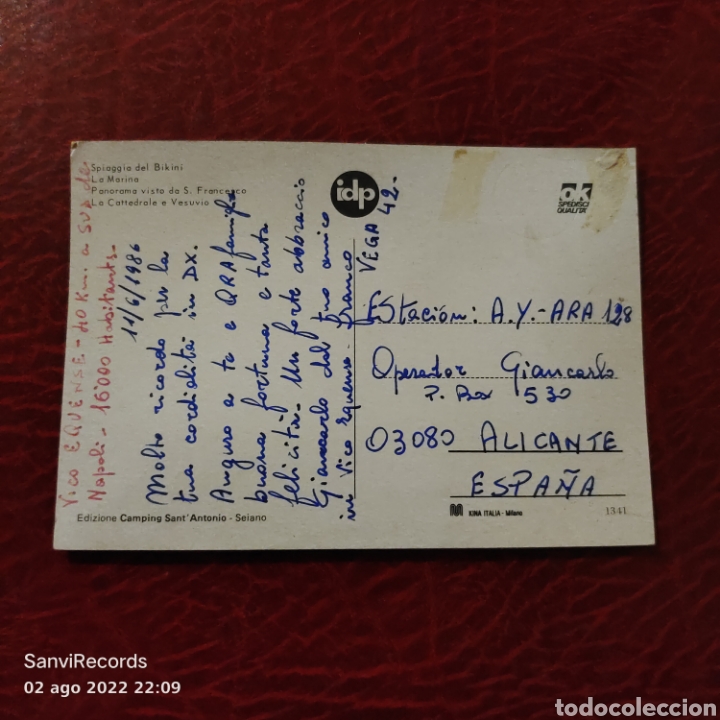 Spiaggia del Bikini
La Marina
Panorama visto da S. Francesco
La Cattedrale e Vesuvio
idp
ok
SPEDISCI
QUALITA'
Vico EQUENSE - 40 Km. a SUD di
Napoli - 16'000 Habitants -
11/6/1986
Molto ricordo per la
tua cordialità in DX.
Auguro a te e QRA famiglia
buona fortuna e tanta
felicità. Un forte abbraccio
Giancarlo dal tuo amico
in Vico Equense - Franco
VEGA 42 -
EStación: A.Y.-ARA 128
Operador Giancarlo
P. Box 530
03080 ALICANTE
ESPAÑA
Edizione Camping Sant'Antonio - Seiano
KINA ITALIA - Milano
1341
SanviRecords
02 ago 2022 22:09
todocoleccion